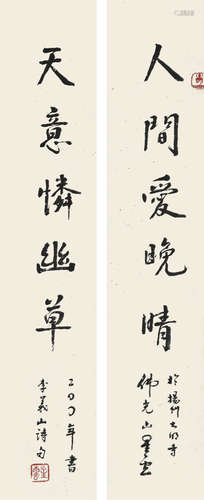 人間愛晚晴
於揚州大明寺
佛光山星雲
天意憐幽草
年書
李義山詩句